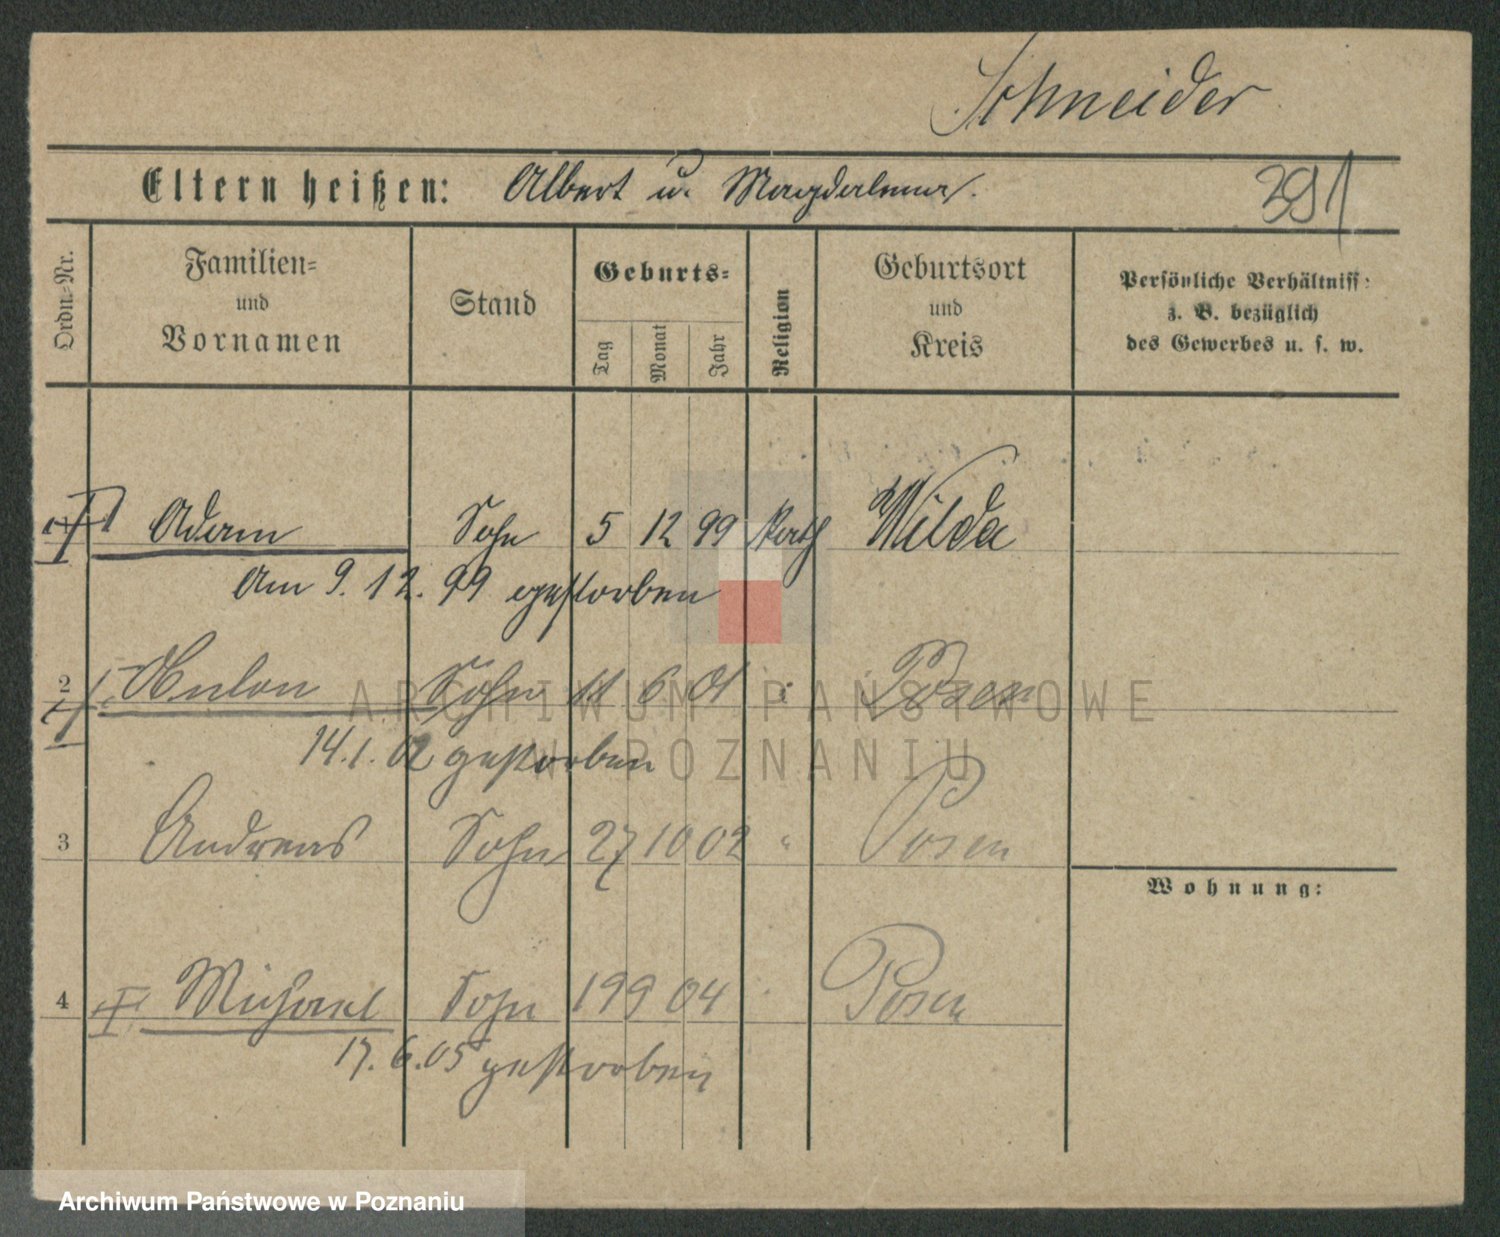 Schneider
Eltern heißen: Albert u. Magdalena.
391
Ordn.-Nr.
Familien-
und
Vornamen
Stand
Geburts-
Tag
Monat
Jahr
Religion
Geburtsort
und
Kreis
Persönliche Verhältniss:
z. B. bezüglich
des Gewerbes u. s. w.
Adam Sohn 5 12 99 kath Wilda
Am 9. 12. 99 gestorben
2 Sohn 11 6 01 Posen
14.1.02 gestorben
3 Andreas Sohn 27 10 02 " Posen
Wohnung:
4 Michael Sohn 19 9 04 Posen
17.6.05 gestorben
ARCHIWUM PAŃSTWOWE
W POZNANIU
Archiwum Państwowe w Poznaniu